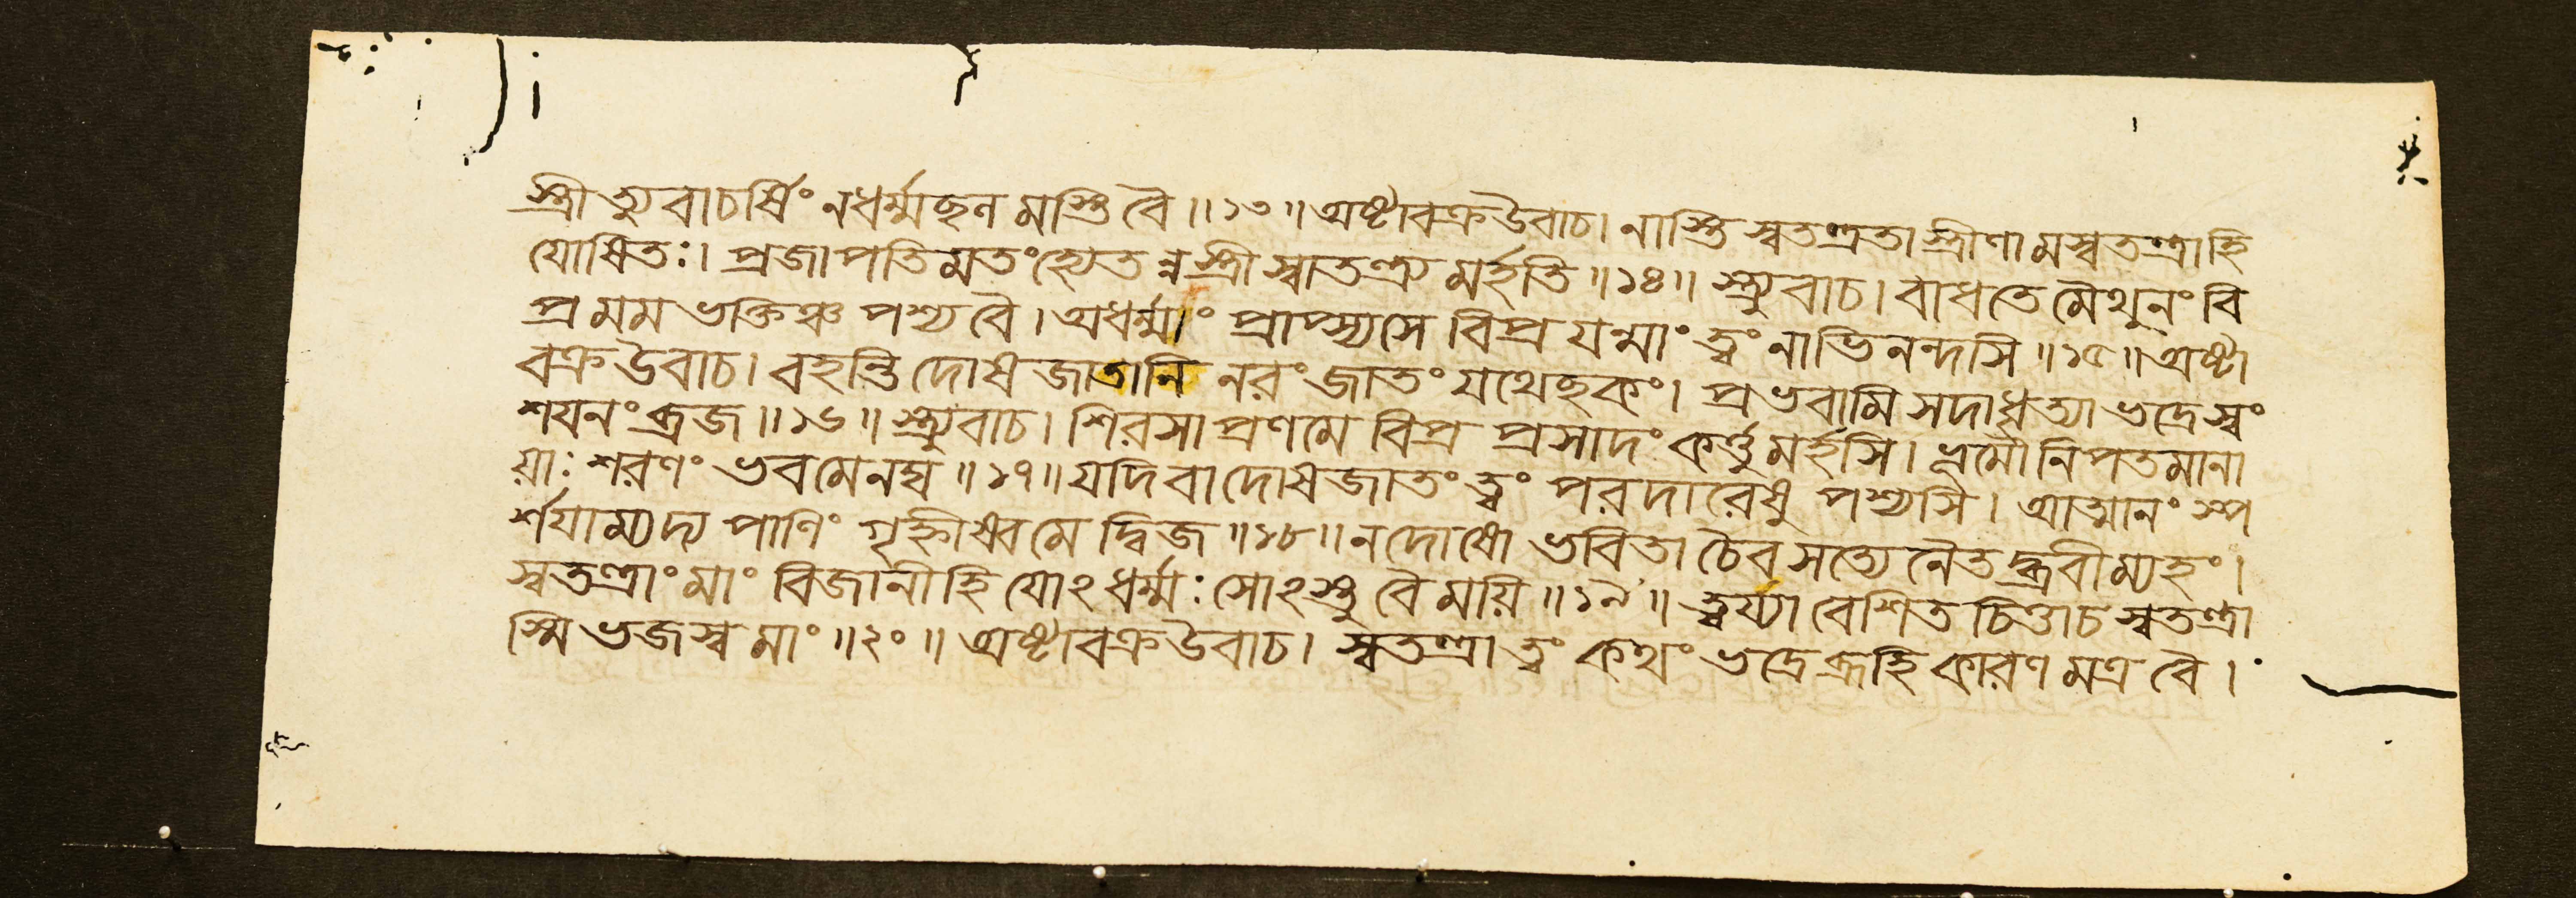 স্ত্রী ত্যুবাচর্ষিং নধর্ম্মছন মাস্তি বৈ॥১৩॥ অষ্টাবক্রউবাচ। নাস্তি স্বতন্ত্রতা স্ত্রীণামস্বতন্ত্রাহি
যোষিতঃ। প্রজাপতিমতংহ্যেতন্নস্ত্রী স্বাতন্ত্র্যমর্হতি॥১৪॥ স্ত্র্যুবাচ। বাধতে মৈথুনং বি
প্র মম ভক্তিঞ্চ পশ্য বৈ। অধর্ম্মাং প্রাপ্স্যসে বিপ্র যন্মাং ত্বং নাভিনন্দসি॥১৫॥ অষ্টা
বক্রউবাচ। বহন্তি দোষজাতানি নরং জাতং যথেছকং। প্রভবামি সদাধৃত্যা ভদ্রে স্বং
শযনং ব্রজ॥১৬॥ স্ত্র্যুবাচ। শিরসা প্রণমে বিপ্র প্রসাদং কর্ত্তুমর্হসি। ভূমৌ নিপতমানা
য়াঃ শরণং ভবমেনঘ॥১৭॥ যদি বা দোষজাতং ত্বং পরদারেষু পশ্যসি। আত্মানং স্প
র্শযাম্যদ্য পাণিং গৃহ্নীষ্বমে দ্বিজ॥১৮॥ ন দোষো ভবিতা চৈব সত্যে নৈতদ্ব্রবীম্যহং।
স্বতন্ত্রাং মাং বিজানীহি যোঽধর্ম্মঃ সোঽস্তু বৈ ময়ি॥১৯॥ ত্বয্যাবেশিত চিত্তাচ স্বতন্ত্রা
স্মি ভজস্ব মাং॥২০॥ অষ্টাবক্রউবাচ। স্বতন্ত্রা ত্বং কথং ভদ্রে ব্রূহি কারণমত্র বৈ।